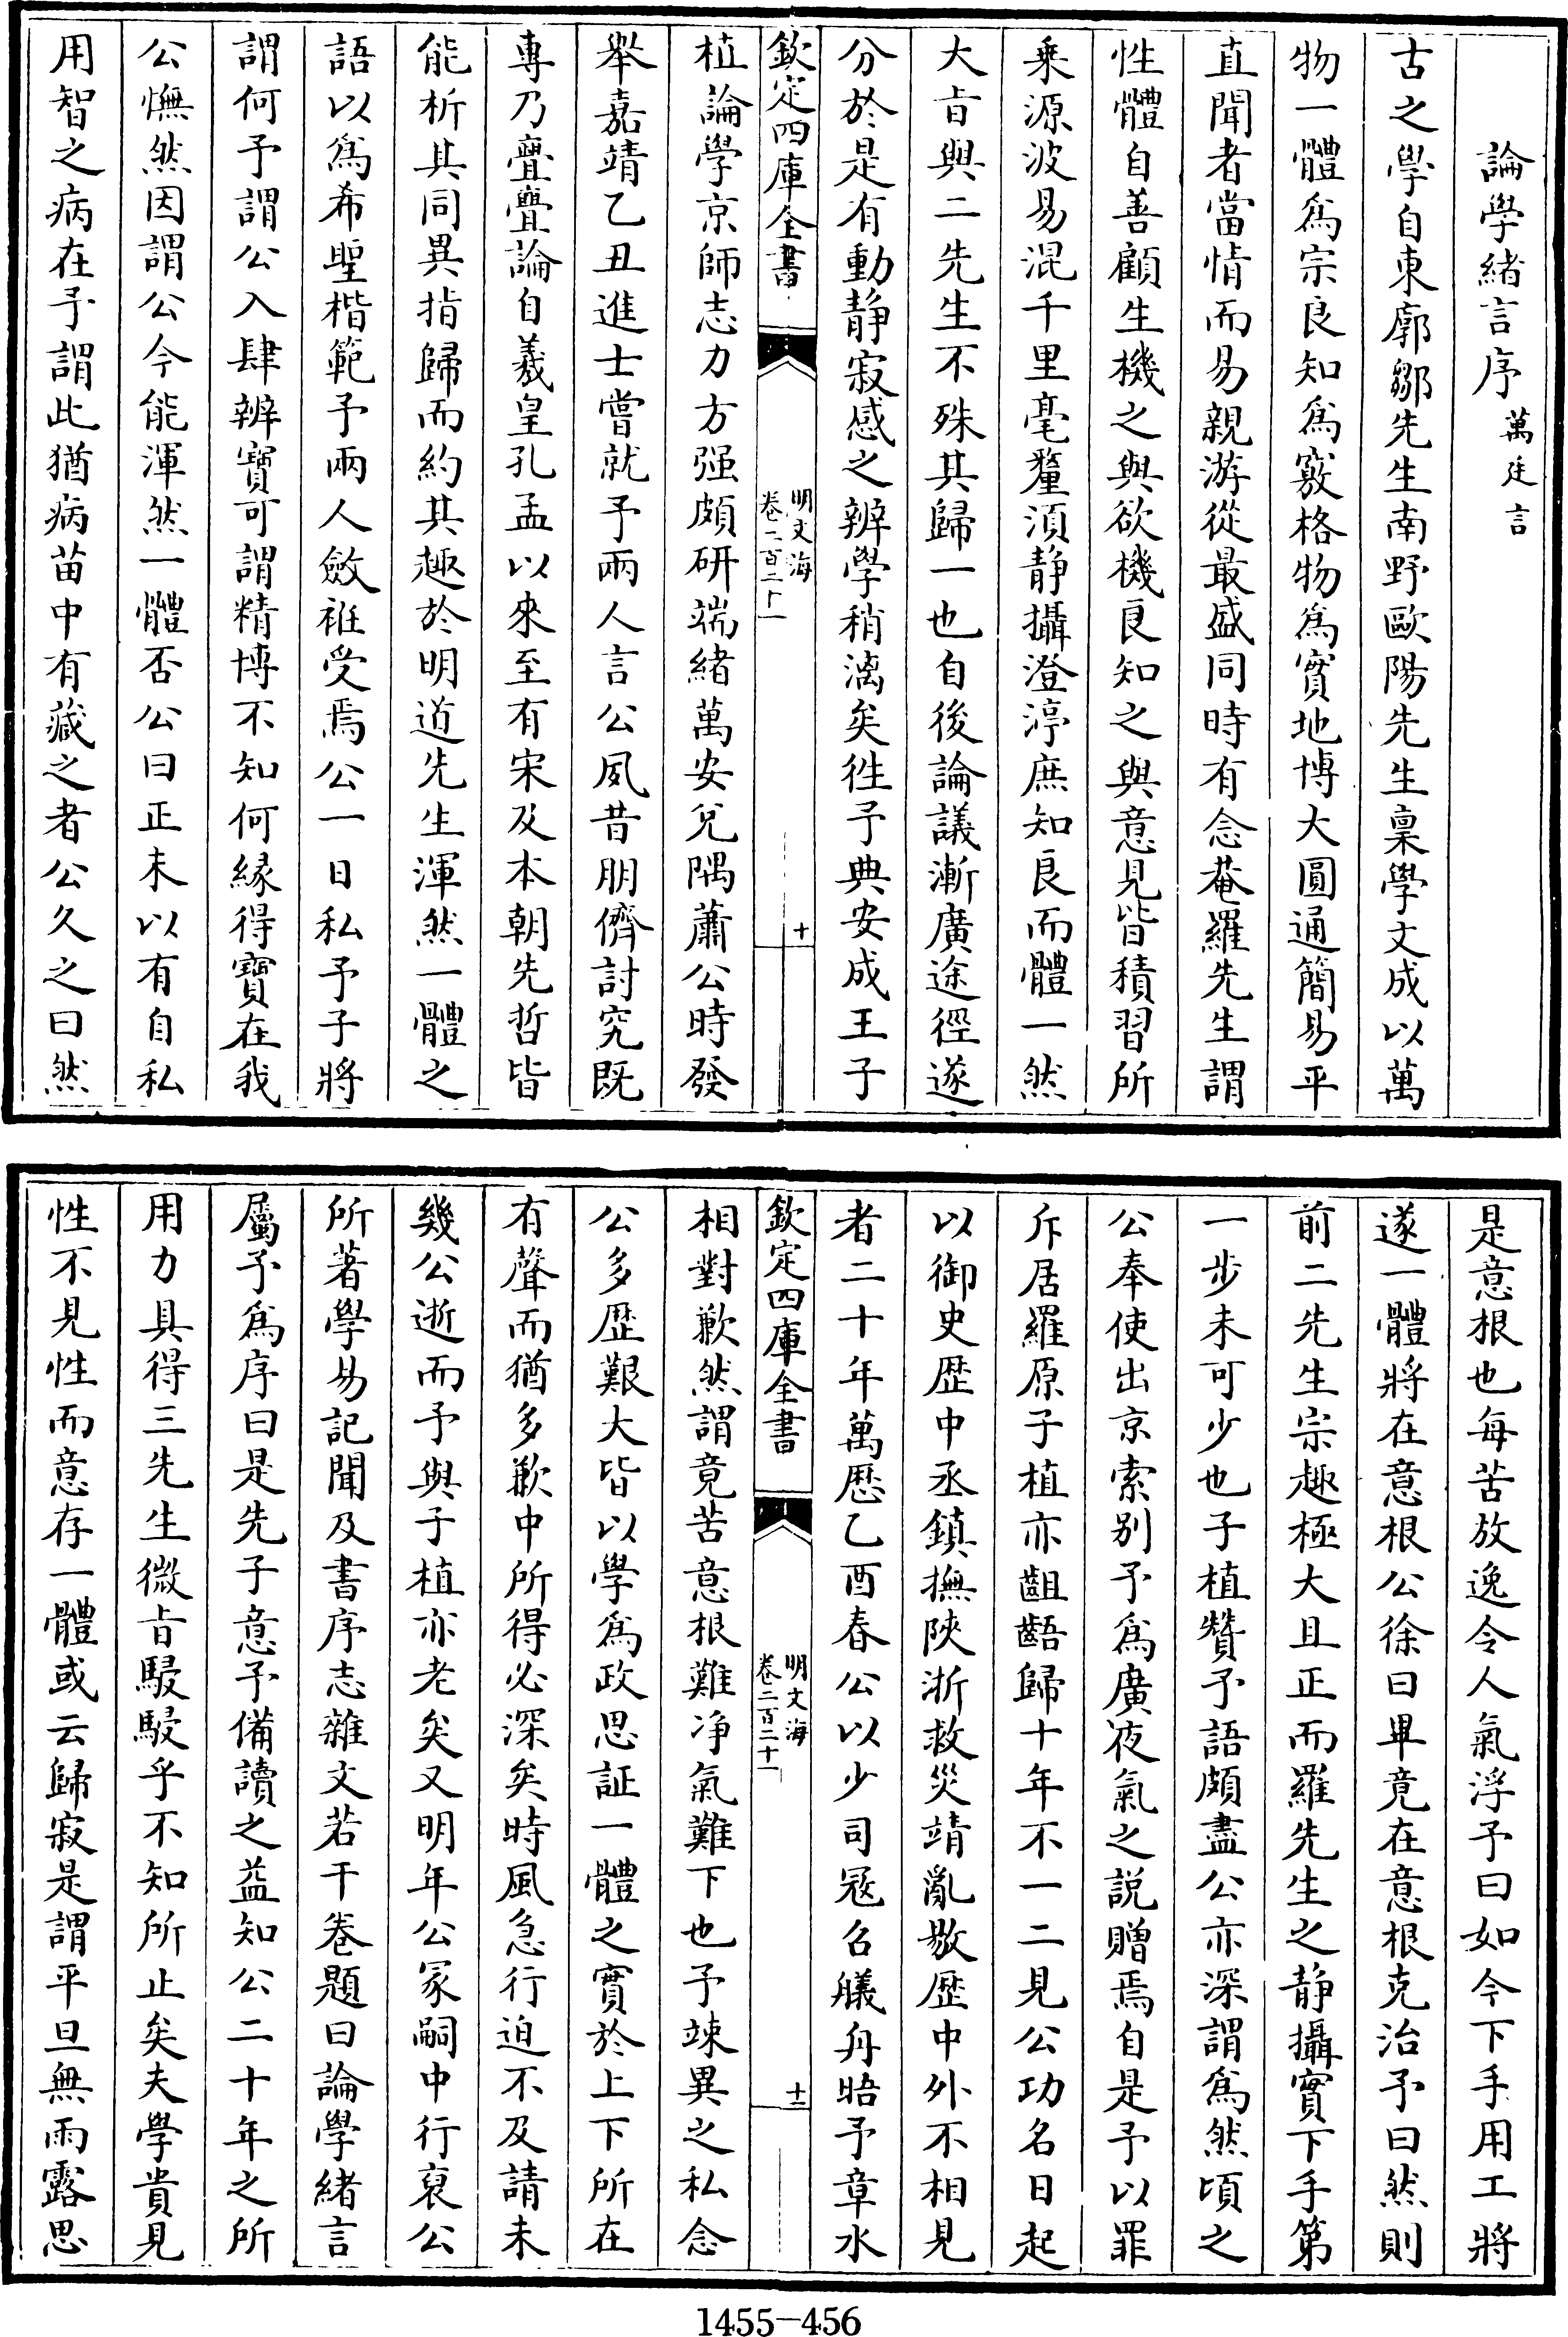 論學緒言序萬廷言
古之學自東廓鄒先生南野歐陽先生稟學文成以萬
物一體爲宗良知爲竅格物爲實地博大圓通簡易平
直聞者當情而易親游從最盛同時有念菴羅先生謂
性體自善顧生機之與欲機良知之與意見皆積習所
乗源波易混千里毫釐湏静攝澄渟庶知良而體一然
大㫖與二先生不殊其歸一也自後論議漸廣途徑遂
分於是有動静寂感之辨學稍漓矣徃予典安成王子
欽定四庫全書
明文海
卷二百二十一
十
植論學京師志力方强頗研端緒萬安兌隅蕭公時發
舉嘉靖乙丑進士嘗就予兩人言公夙昔朋儕討究既
專乃亹亹論自羲皇孔孟以來至有宋及本朝先哲皆
能析其同異指歸而約其趣於明道先生渾然一體之
語以爲希聖楷範予兩人斂袵受焉公一日私予子將
謂何予謂公入肆辨寶可謂精博不知何緣得寶在我
公憮然因謂公今能渾然一體否公曰正未以有自私
用智之病在予謂此猶病苗中有藏之者公久之曰然
是意根也每苦放逸令人氣浮予曰如今下手用工將
遂一體將在意根公徐曰畢竟在意根克治予曰然則
前二先生宗趣極大且正而羅先生之静攝實下手第
一步未可少也子植贊予語頗盡公亦深謂爲然頃之
公奉使出京索别予爲廣夜氣之説贈焉自是予以罪
斥居羅原子植亦齟齬歸十年不一二見公功名日起
以御史歴中丞鎮撫陝浙救災靖亂敭歴中外不相見
者二十年萬歴乙酉春公以少司冦召艤舟晤予章水
欽定四庫全書
明文海
卷二百二十一
十一
相對歉然謂竟苦意根難净氣難下也予竦異之私念
公多歴艱大皆以學爲政思証一體之實於上下所在
有聲而猶多歉中所得必深矣時風急行迫不及請未
幾公逝而予與子植亦老矣又明年公冡嗣中行裒公
所著學易記聞及書序志雜文若干巻題曰論學緒言
屬予爲序曰是先子意予備讀之益知公二十年之所
用力具得三先生微㫖駸駸乎不知所止矣夫學貴見
性不見性而意存一體或云歸寂是謂平旦無雨露思
1455-456